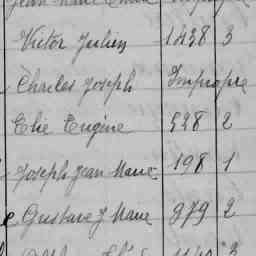 Victor Julien 1438 3
Charles Joseph Impropre
Elie Eugène 538 2
Joseph Jean Marie 198 1
Gustave J Marie 979 2